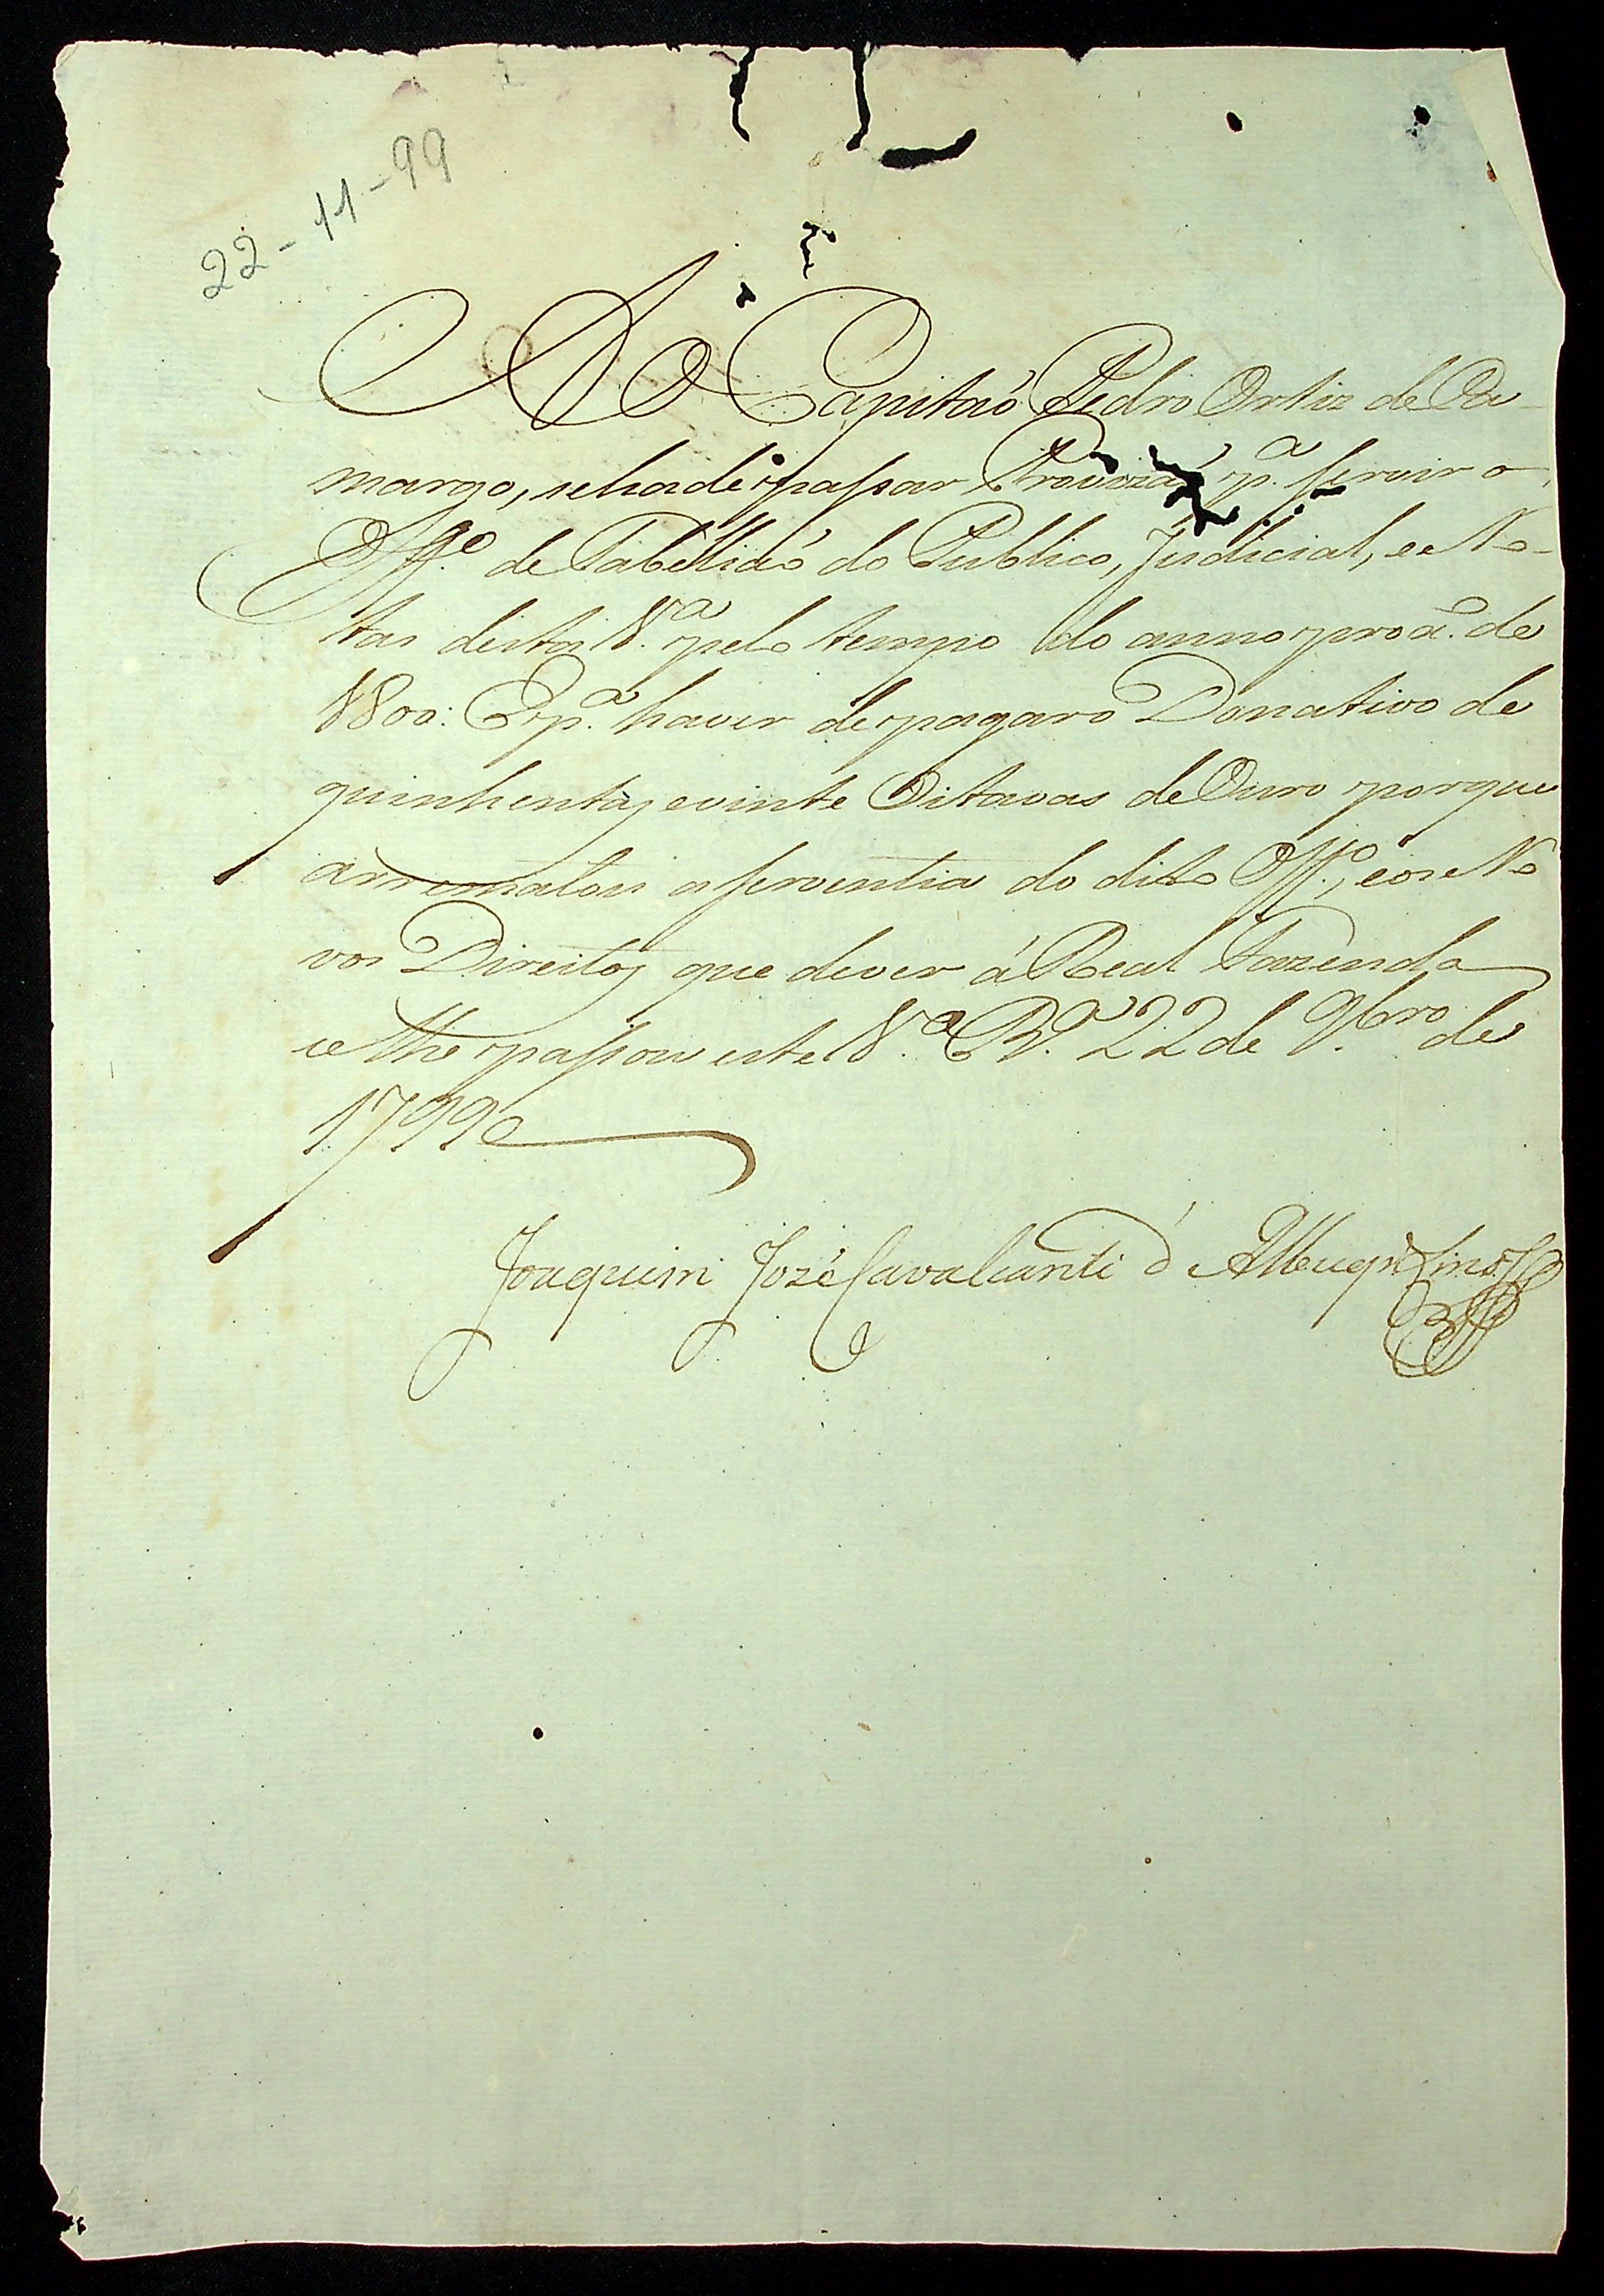 22-11-99
Ao Capitaõ Pedro Ortiz de Ca-
margo, se ha de passar Provizaõ p.ª servir o
Off.º de Tabelliaõ do Publico, Judicial, e No-
tas desta V.ª pelo tempo do anno proã. de
1800: E p.ª haver de pagar o Donativo de
quinhentas, e vinte Oitavas de Ouro porque
arrematou a serventia do dito Off.º, e os No
vos Direitos que dever á Real Fazenda
se lhe passou este V.ª B.ª 22 de 9.bro de
1799
Joaquim José Cavalcanti d'Albuqr.